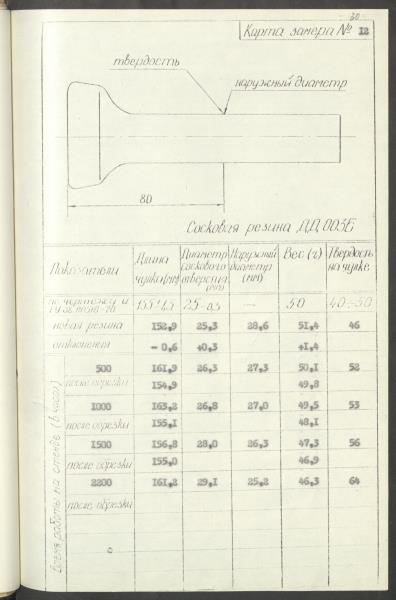 30
Карта замера № 12
твердость
наружный диаметр
80
Сосковая резина ДД.003Е
Показатели Длина чулка (мм) Диаметр соскового отверстия (мм) Наружный диаметр (мм) Вес (г) Твердость на чулке
по чертежу и 155 25 — 50 40÷50
новая резина 152,9 25,3 28,6 51,4 46
отклонения -0,6 +0,3 +1,4
500 161,9 26,3 27,3 50,1 52
после обрезки 154,9 49,8
1000 163,2 26,8 27,0 49,5 53
после обрезки 155,1 48,1
1500 156,8 28,0 26,3 47,3 56
после обрезки 155,0 46,9
2200 161,2 29,1 25,2 46,3 64
после обрезки
Время работы на стенде (в часах)